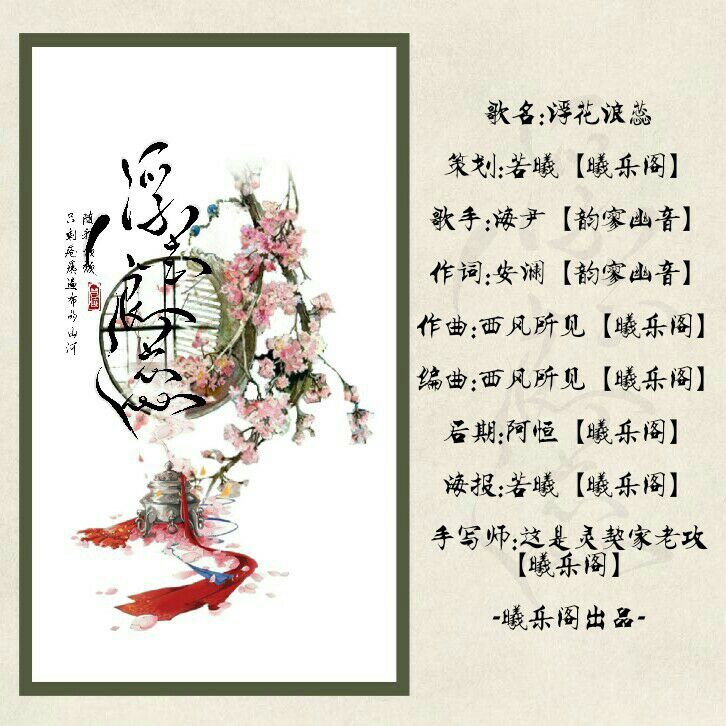 浮花浪蕊
只剩花瘼遍布的山河
歌名:浮花浪蕊
策划:若曦【曦乐阁】
歌手:海尹【韵家幽音】
作词:安澜【韵家幽音】
作曲:西风所见【曦乐阁】
编曲:西风所见【曦乐阁】
后期:阿恒【曦乐阁】
海报:若曦【曦乐阁】
手写师:这是灵契家老攻
【曦乐阁】
-曦乐阁出品-